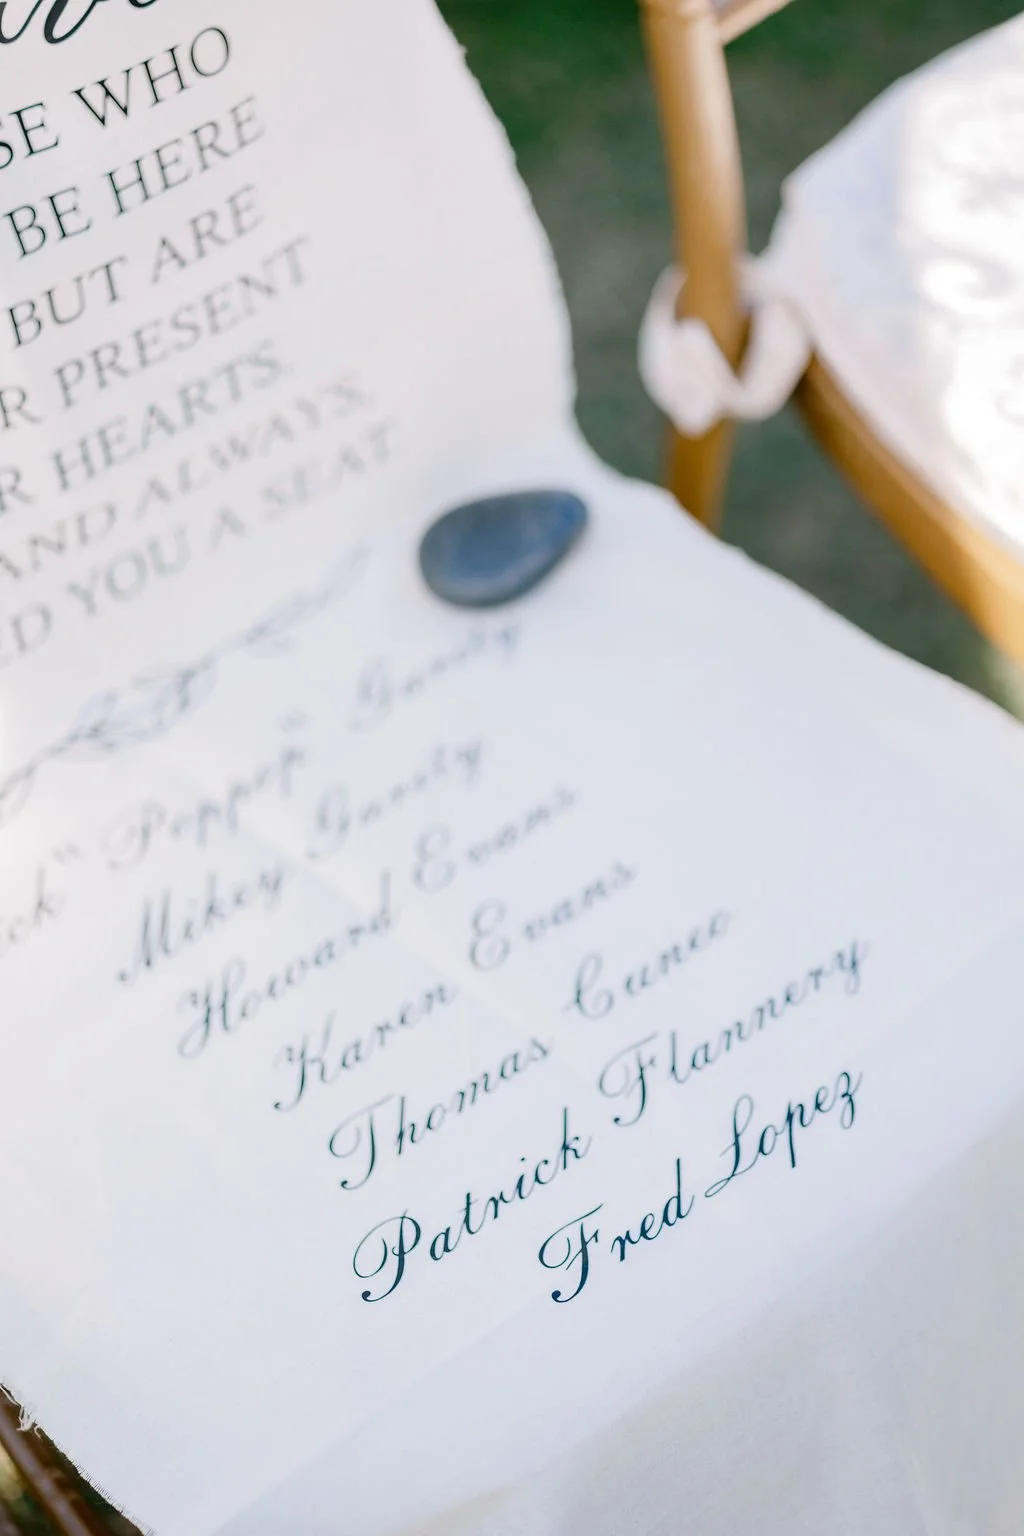 SE WHO
BE HERE
BUT ARE
R PRESENT
R HEARTS.
AND ALWAYS,
ED YOU A SEAT
ck" "Popper" Garity
Mikey Garity
Howard Evans
Karen Evans
Thomas Cuneo
Patrick Flannery
Fred Lopez